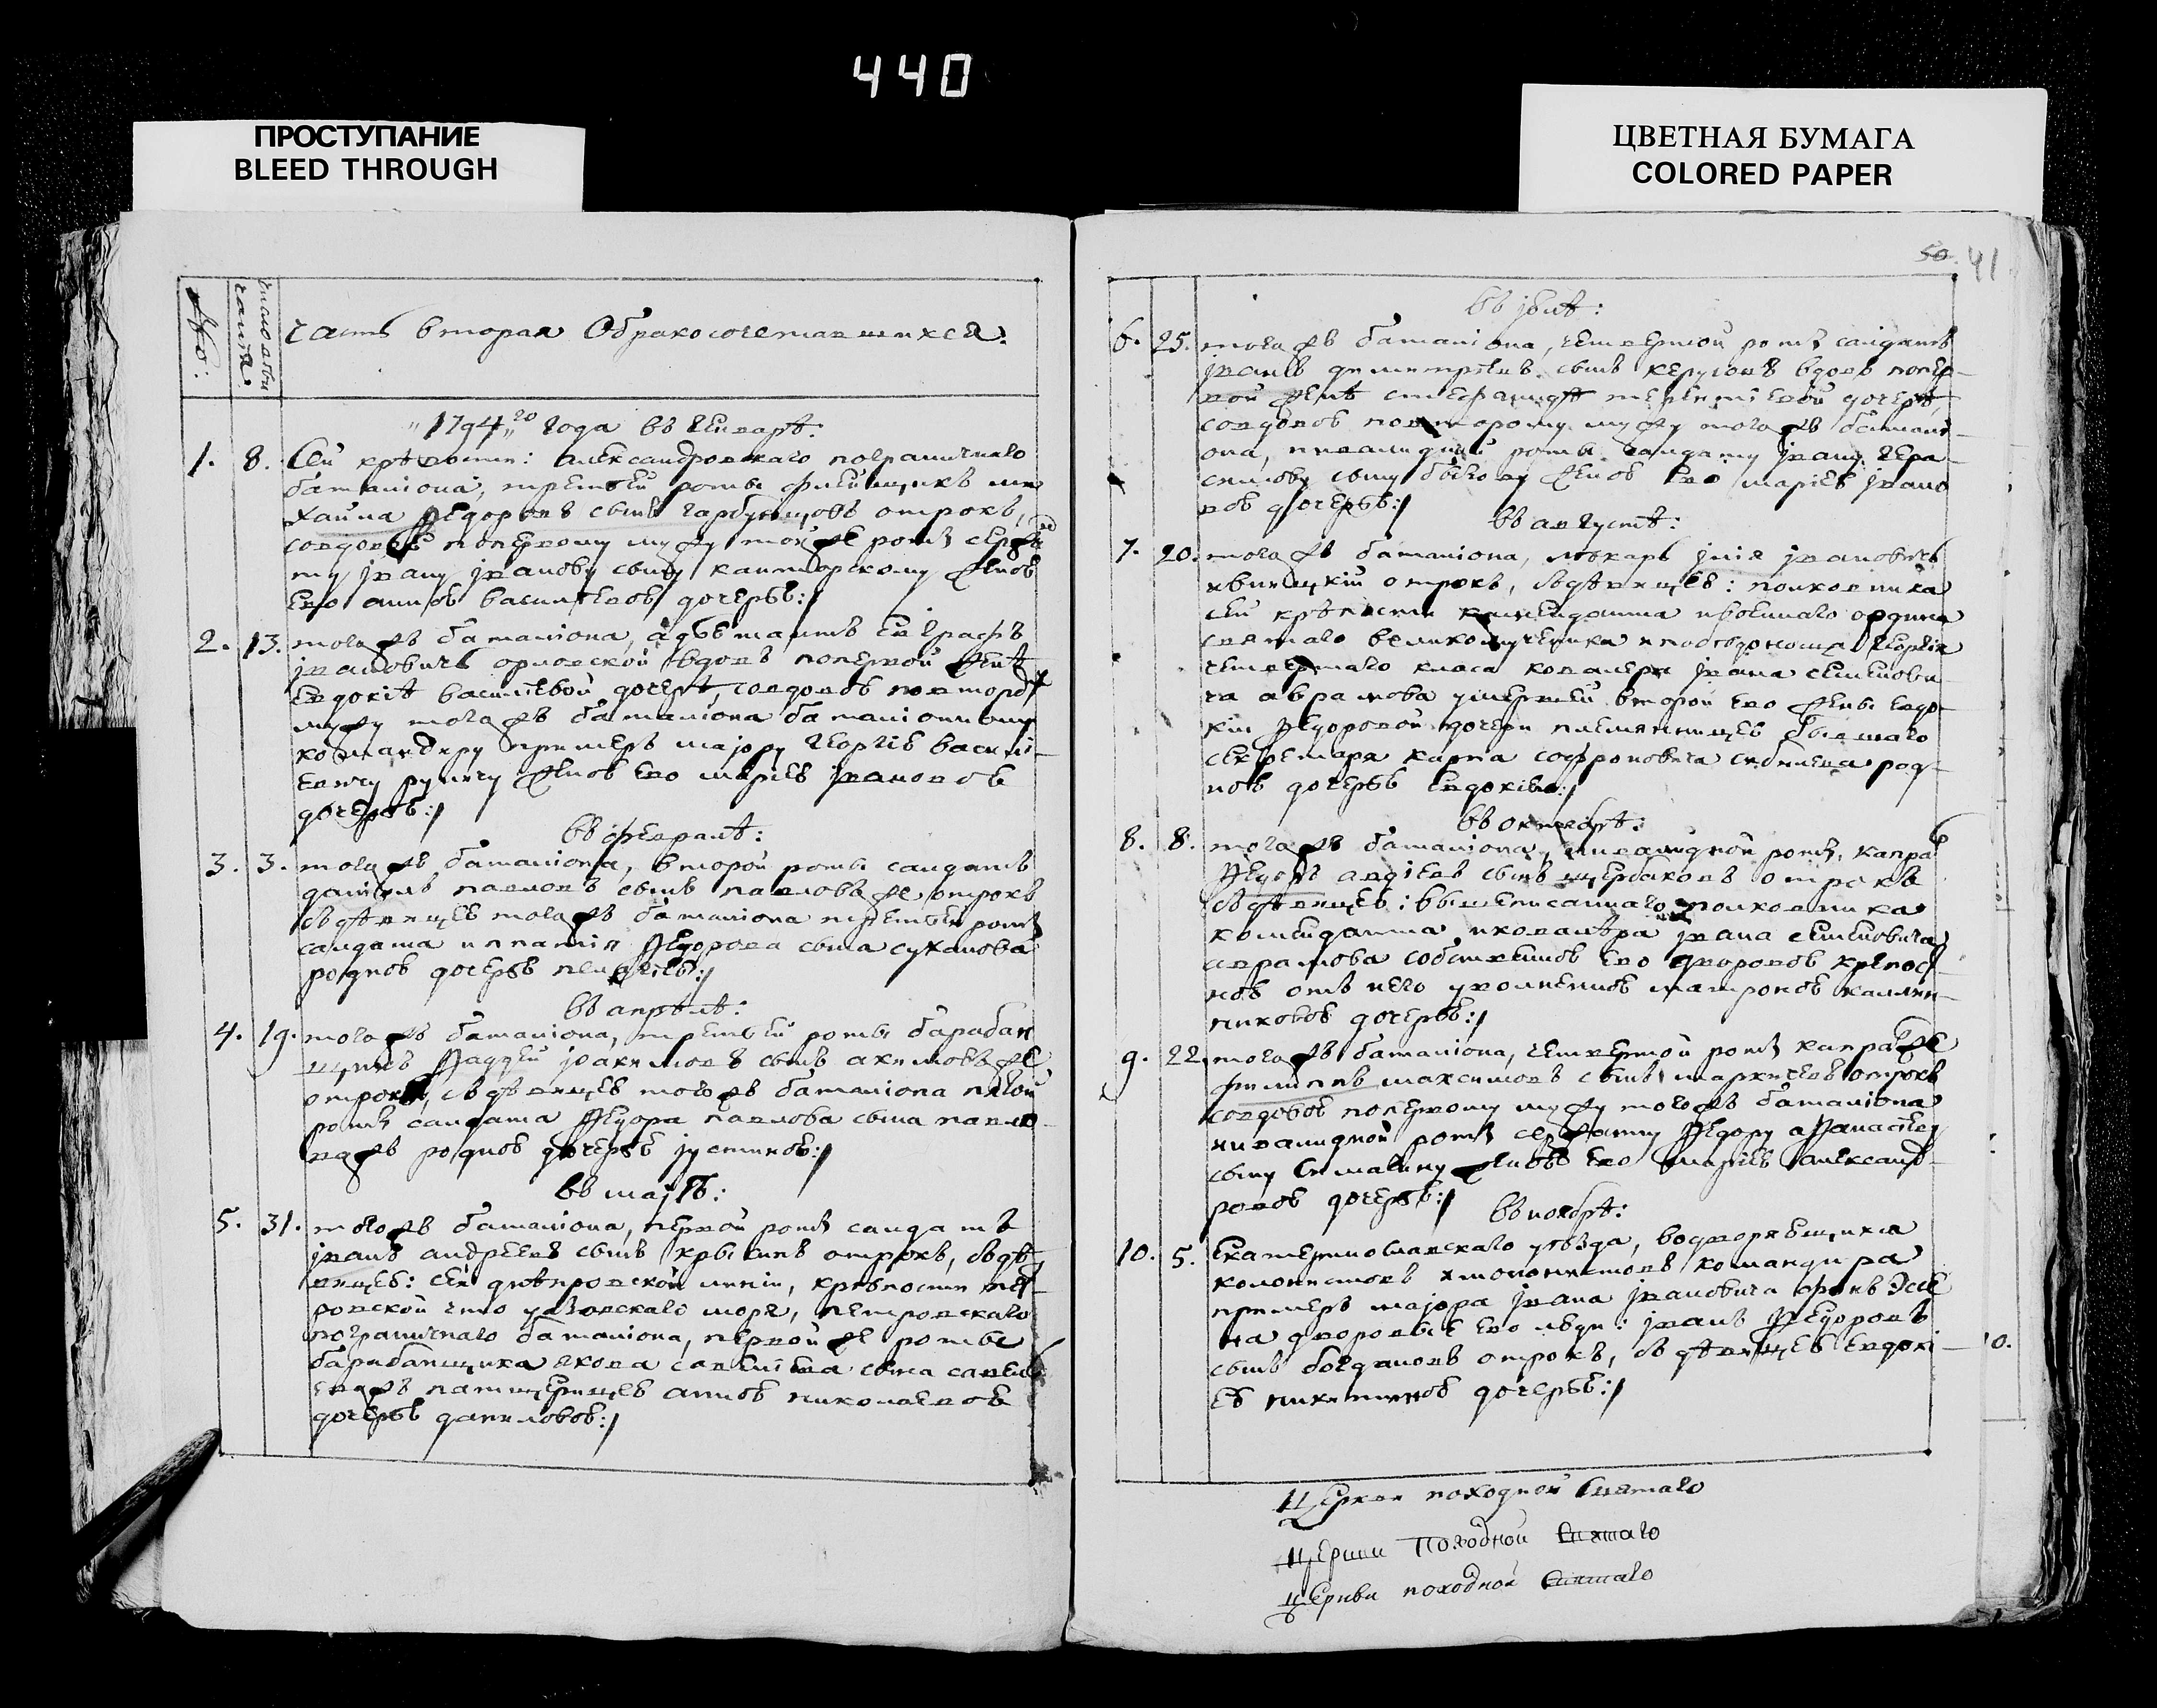 440
ПРОСТУПАНИЕ
BLEED THROUGH
ЦВЕТНАЯ БУМАГА
COLORED PAPER
№:
число дни
часть вторая О бракосочетавшихся:
1794 го года въ генварѣ:
1. 8. Сей крѣпости: александровскаго пограничнаго
баталиона, третьей роты флейщикъ ми
хайла Ѳедоровъ сынъ отрокъ,
совдовою попервому мужу той же роты сержан
ту јвану јванову сыну канторскому женою
ево анною васильевою дочерью:/
2. 13. того жъ баталиона, адъютантъ евграфъ
јвановичь орловской вдовъ попервой женѣ
евдокіѣ васильевой дочерѣ, совдовою повторому
мужу того жъ баталиона баталионному
командиру примеръ мајору георгію василі
евичу женою ево маріею јвановою
дочерью:/
въ февралѣ:
3. 3. того жъ баталиона, второй роты салдатъ
даніилъ павловъ сынъ павловъ же отрокъ
съ дѣвицею того жъ баталиона третьей роты
салдата ипатія Ѳедорова сына суханова
родною дочерью пелагіею:/
въ апрѣлѣ:
4. 19. того жъ баталиона, третьей роты барабан
щикъ Ѳаддей јоакимовъ сынъ акимовъ же
отрокъ, съ дѣвицею того жъ баталиона пятой
роты салдата Ѳедора павлова сына павло
ва жъ родною дочерью јустиною:/
въ мајѣ:
5. 31. того жъ баталиона, первой роты салдатъ
јванъ андреевъ сынъ отрокъ, съ дѣ
вицею: сей днѣпровской линіи, крѣпости пет
ровской что у азовскаго моря, петровскаго
пограничнаго баталиона, первой же роты
барабанщика якова савеліева сына савель
ева жъ падщерицею анною николаевою
дочерью даниловою:/
50 41
въ јюлѣ:
6. 25. того жъ баталиона, четвертой роты салдатъ
јванъ димитріевъ сынъ вдовъ попер
вой женѣ стефанидѣ терентіевой дочерѣ,
совдовою повторому мужу того жъ баталі
она, инвалидной роты салдату јвану гера
симову сыну быкову женою ево маріею јвано
вою дочерью:/
въ августѣ:
7. 20. того жъ баталиона, лѣкарь јлія јвановичь
отрокъ, съ дѣвицею: полковника
сей крѣпости каменданта и военнаго ордена
святаго великомученика и победоносца георгія
четвертаго класа ковалера јвана семенови
ча аврамова умершей второй ево жены евдо
кіи Ѳедоровой дочери племянницею бывшаго
секретаря карпа софроновича род
ною дочерью евдокіею:/
въ октябрѣ:
8. 8. того жъ баталиона, инвалидной роты, капралъ
Ѳедоръ авдіевъ сынъ щербаковъ отрокъ
съ дѣвицею: вышеписаннаго полковника
каменданта и ковалера јвана семеновича
аврамова собственною ево дворовою крепос
ною отъ него уволненною матроною калин
никовою дочерью:/
9. 22. того жъ баталиона, четвертой роты капралъ же
филиппъ максимовъ сынъ отрокъ
совдовою попервому мужу того жъ баталиона
инвалидной роты сержанту Ѳедору аѲанасіеву
сыну женою ево маріею александ
ровою дочерью:/
въ ноябрѣ:
10. 5. Екатеринославскаго уѣзда, водворяющихся
колонистовъ командира
примеръ мајора јвана јвановича фонъ
на дворовые ево люди: јванъ Ѳедоровъ
сынъ богдановъ отрокъ, съ дѣвицею евдокі
ею никитиною дочерью:/
10.
Церкви походной Святаго
Церкви Походной Святаго
Церкви походной Святаго